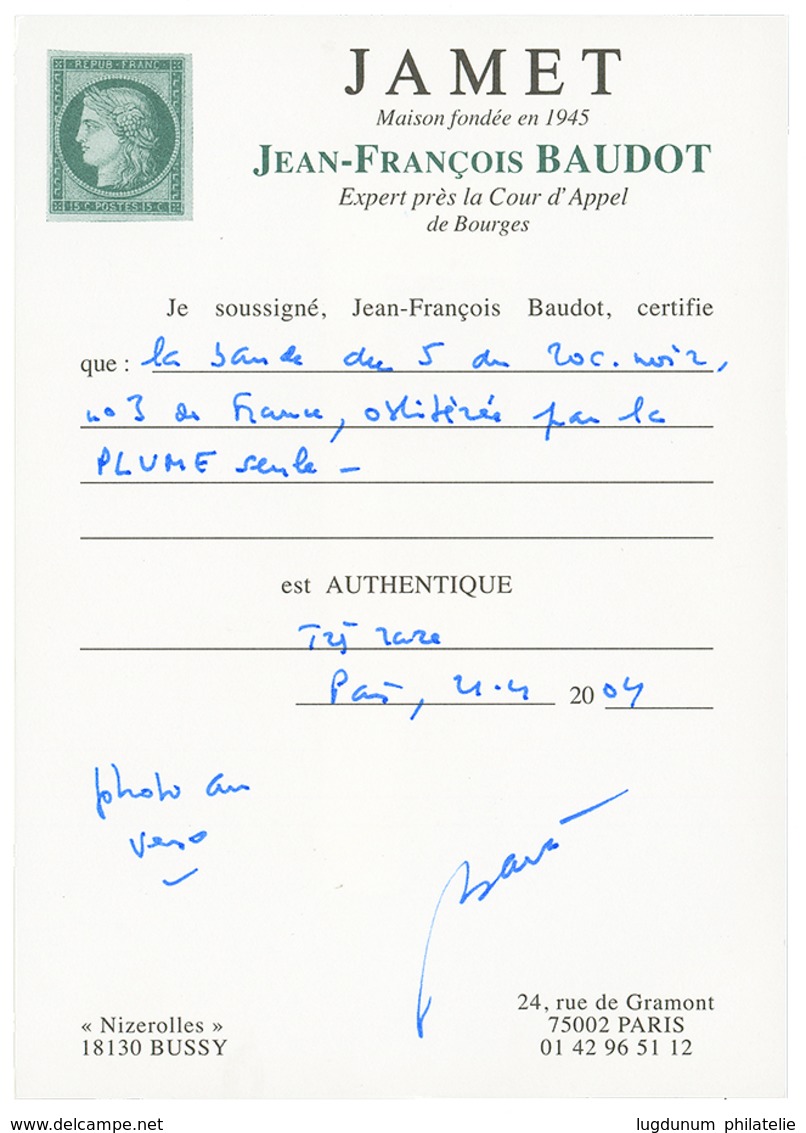 REPUB·FRANC
15 C POSTES 15 C
JAMET
Maison fondée en 1945
JEAN-FRANÇOIS BAUDOT
Expert près la Cour d'Appel
de Bourges
Je soussigné, Jean-François Baudot, certifie
que : la bande de 5 du 20c. noir,
no 3 de France, oblitérée par la
PLUME seule –
est AUTHENTIQUE
Très rare
Paris, 21.4 2004
photo au
verso
« Nizerolles »
18130 BUSSY
24, rue de Gramont
75002 PARIS
01 42 96 51 12
www.delcampe.net
lugdunum philatelie